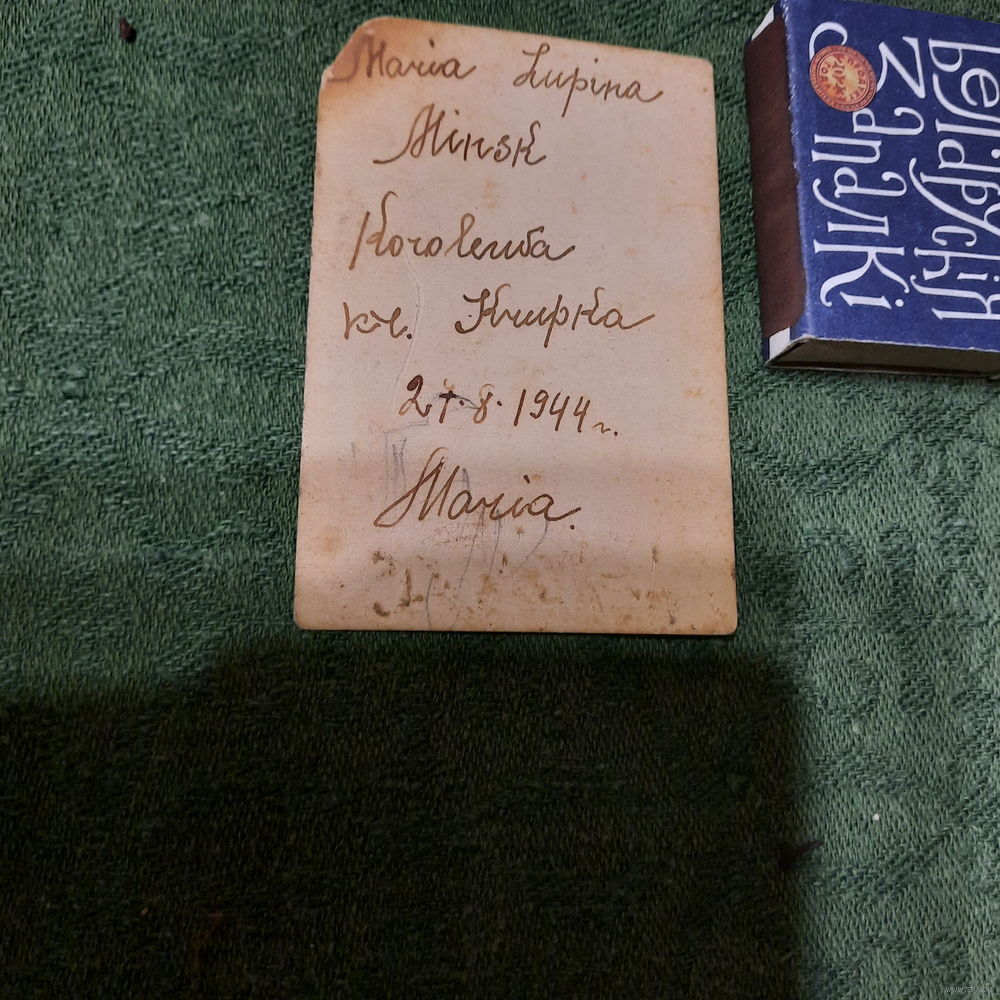 Maria Lupina
Minsk
Korolenka
kv. Krupka
27.8.1944 г.
Maria.
Беларускія
Запалкі